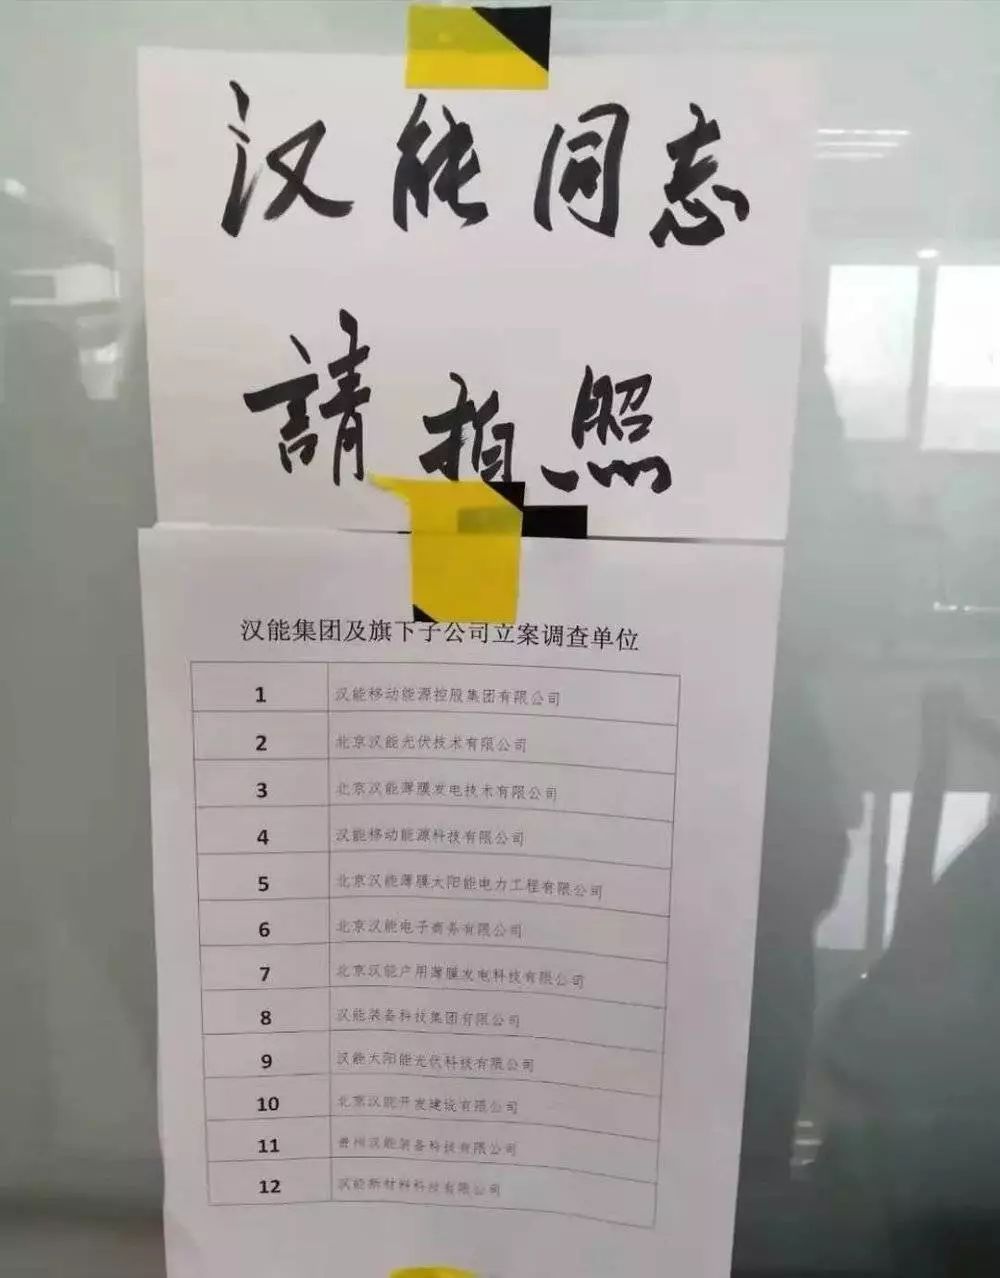 汉能同志
請拍照
汉能集团及旗下子公司立案调查单位
1 汉能移动能源控股集团有限公司
2 北京汉能光伏技术有限公司
3 北京汉能薄膜发电技术有限公司
4 汉能移动能源科技有限公司
5 北京汉能薄膜太阳能电力工程有限公司
6 北京汉能电子商务有限公司
7 北京汉能户用薄膜发电科技有限公司
8 汉能装备科技集团有限公司
9 汉能太阳能光伏科技有限公司
10 北京汉能开发建设有限公司
11 贵州汉能装备科技有限公司
12 汉能新材料科技有限公司